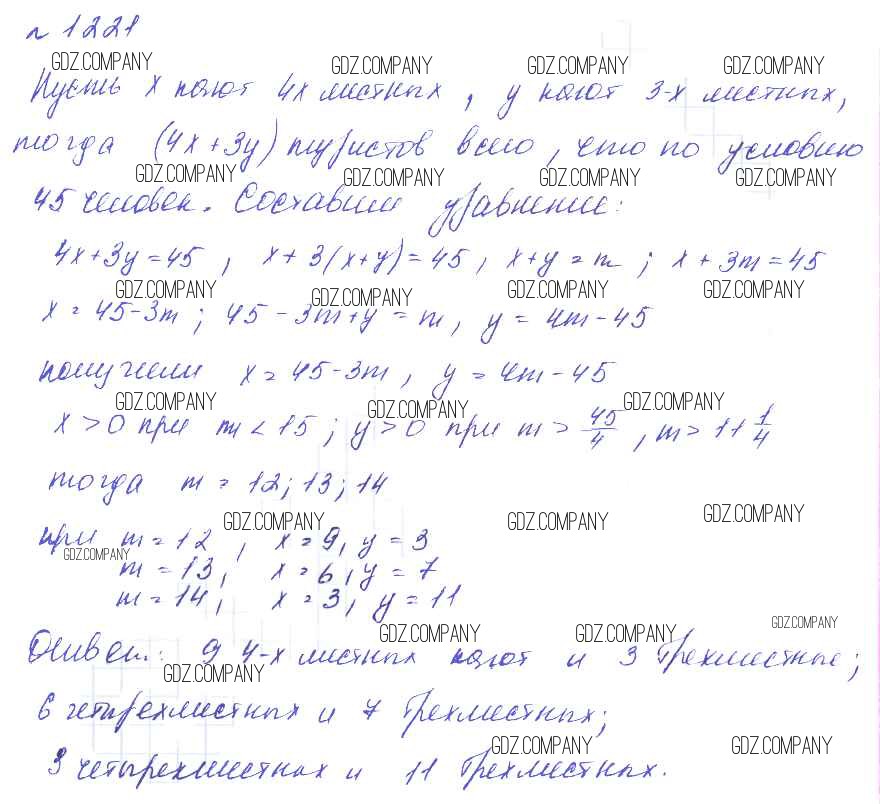 № 1221
GDZ.COMPANY GDZ.COMPANY GDZ.COMPANY GDZ.COMPANY
Пусть x кают 4х местных, y кают 3-х местных,
тогда (4x+3y) туристов всего, что по условию
GDZ.COMPANY GDZ.COMPANY GDZ.COMPANY GDZ.COMPANY
45 человек. Составим уравнение:
4x+3y=45, x+3(x+y)=45, x+y=m; x+3m=45
GDZ.COMPANY GDZ.COMPANY GDZ.COMPANY GDZ.COMPANY
x=45-3m; 45-3m+y=m, y=4m-45
получили x=45-3m, y=4m-45
GDZ.COMPANY GDZ.COMPANY GDZ.COMPANY
x>0 при m<15; y>0 при m>45/4, m>11 1/4
тогда m=12; 13; 14
GDZ.COMPANY GDZ.COMPANY GDZ.COMPANY
при m=12, x=9, y=3
GDZ.COMPANY
m=13, x=6, y=7
m=14, x=3, y=11
GDZ.COMPANY GDZ.COMPANY GDZ.COMPANY
Ответ: 9 4-х местных кают и 3 трехместные;
GDZ.COMPANY
6 четырехместных и 7 трехместных;
GDZ.COMPANY GDZ.COMPANY
3 четырехместных и 11 трехместных.